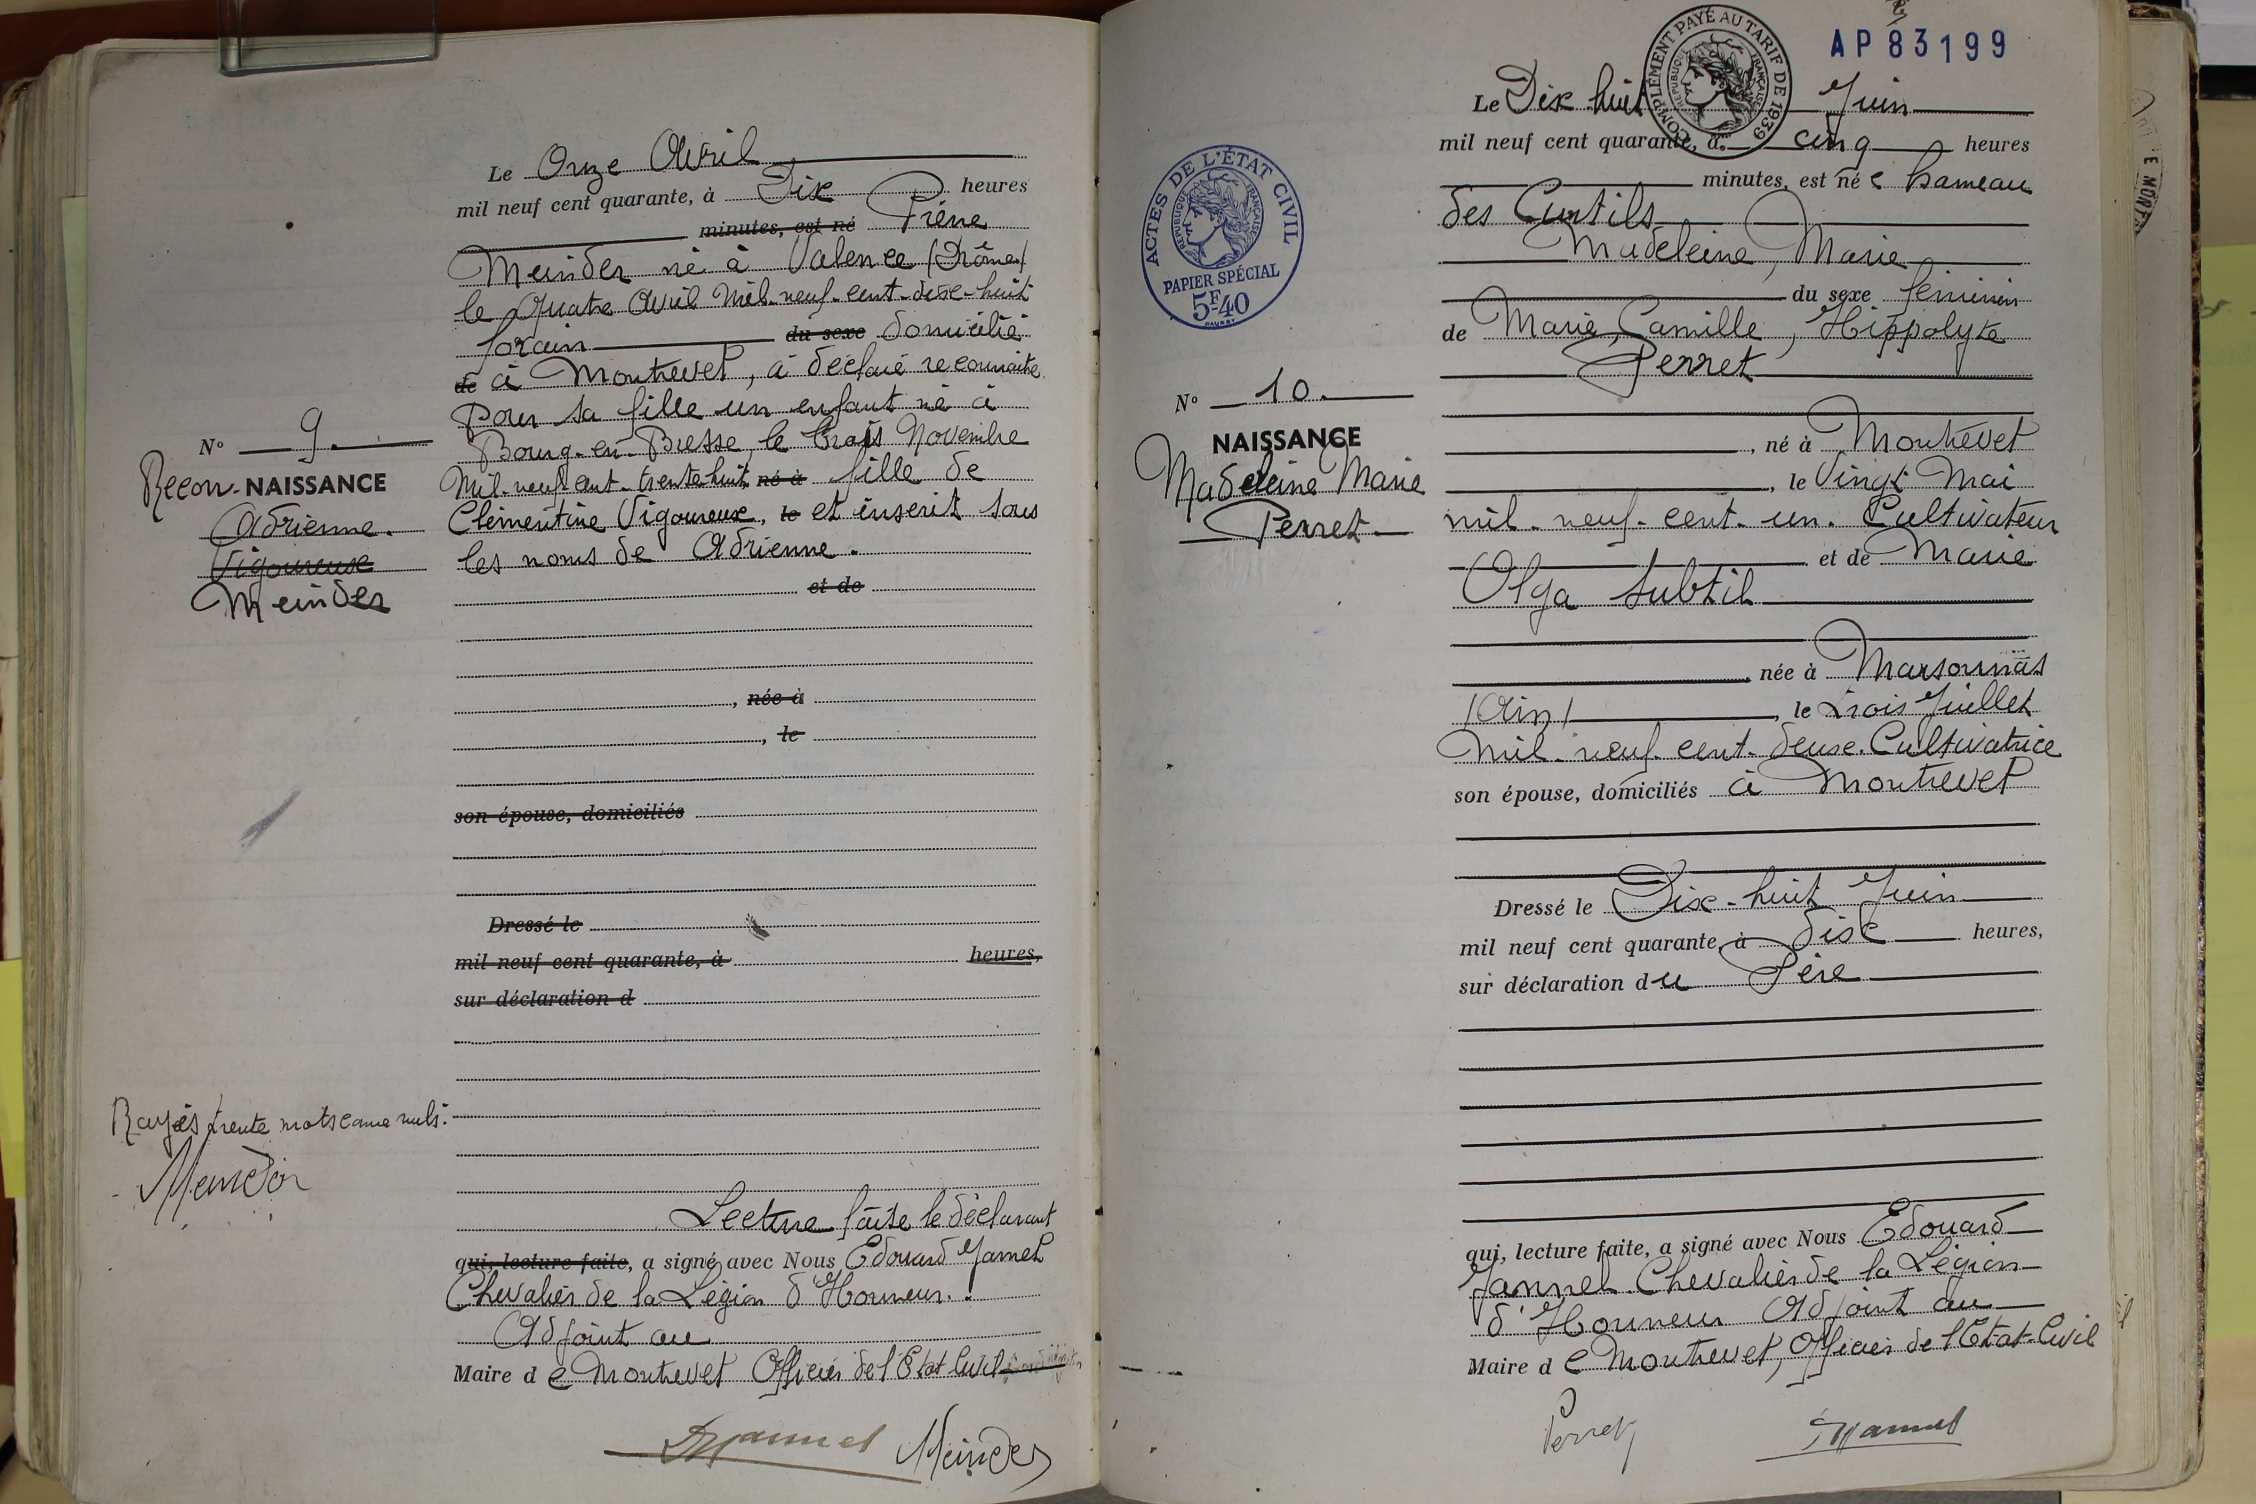 Le Onze Avril
mil neuf cent quarante, à Dix heures
minutes, est né Pierre
Meinder né à Valence (Drôme)
le Quatre Avril Mil-neuf-cent-dix-huit
forain du sexe domicilié
de à Montrevel, a déclaré reconnaitre
Pour sa fille un enfant né à
Bourg-en-Bresse, le trois Novembre
Mil-neuf-cent-trente-huit né à fille de
Clémentine Vigoureux, le et inscrit sous
les noms de Adrienne.
et de
, née à
, le
son épouse, domiciliés
Dressé le
mil neuf cent quarante, à heures,
sur déclaration d
Lecture faite le déclarant
qui, lecture faite, a signé avec Nous Edouard Jannel
Chevalier de la Légion d'Honneur.
Adjoint au
Maire de Montrevel Officier de l'Etat-Civil
Jannel Meinder
N° 9.
Recon-NAISSANCE
Adrienne.
Vigoureux
Meinder
Rayés trente mots comme nuls.
Meinder
AP 83199
COMPLÉMENT PAYÉ AU TARIF DE 1939
RÉPUBLIQUE FRANÇAISE
Le Dix huit Juin
mil neuf cent quarante, à cinq heures
minutes, est née hameau
des Curtils
Madeleine, Marie
du sexe féminin
de Marie, Camille, Hippolyte
Perret
, né à Montrevel
, le Vingt Mai
mil-neuf-cent-un. Cultivateur
et de Marie
Olga Subtil
, née à Marsonnas
(Ain), le Trois Juillet
Mil-neuf-cent-deux. Cultivatrice
son épouse, domiciliés à Montrevel
Dressé le Dix-huit Juin
mil neuf cent quarante, à dix heures,
sur déclaration du Père
qui, lecture faite, a signé avec Nous Edouard
Jannel. Chevalier de la Légion
d'Honneur Adjoint au
Maire de Montrevel, Officier de l'Etat-Civil
Perret Jannel
ACTES DE L'ÉTAT CIVIL
RÉPUBLIQUE FRANÇAISE
PAPIER SPÉCIAL
5F40
N° 10.
NAISSANCE
Madeleine Marie
Perret